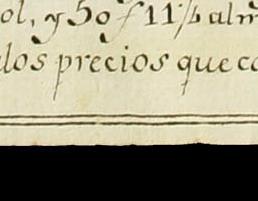 ol, y 50 f 11 ½ alm
los precios que co